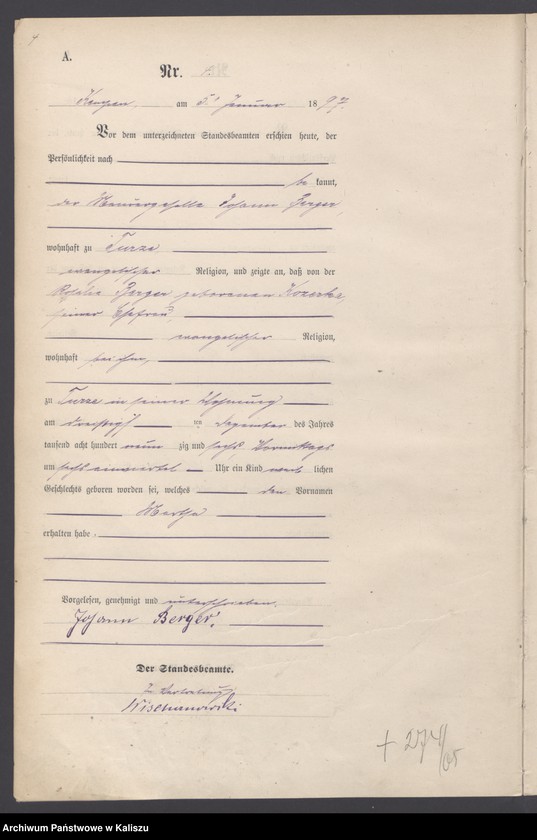 A.
Nr.
Kempen, am 5. Januar 1897.
Vor dem unterzeichneten Standesbeamten erschien heute, der
Persönlichkeit nach
be kannt,
der Maurergeselle Johann Berger,
wohnhaft zu Turze
evangelischer Religion, und zeigte an, daß von der
Rosalie Berger geborenen
seiner Ehefrau,
evangelischer Religion,
wohnhaft bei ihm,
zu Turze in seiner Wohnung
am dreißig ten Dezember des Jahres
tausend acht hundert neun zig und sechs, Vormittags
um sechs einviertel Uhr ein Kind weib lichen
Geschlechts geboren worden sei, welches den Vornamen
Martha
erhalten habe.
Vorgelesen, genehmigt und unterschrieben.
Johann Berger.
Der Standesbeamte.
In Vertretung
+ 274/65
Archiwum Państwowe w Kaliszu